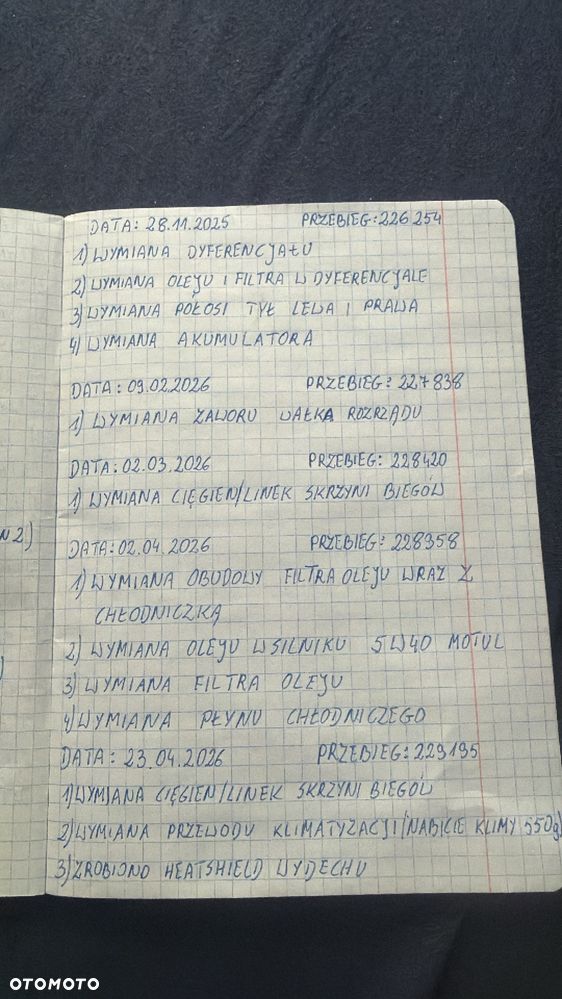 DATA: 28.11.2025 PRZEBIEG: 226 254
1) WYMIANA DYFERENCJAŁU
2) WYMIANA OLEJU I FILTRA W DYFERENCJALE
3) WYMIANA PÓŁOSI TYŁ LEWA I PRAWA
4) WYMIANA AKUMULATORA
DATA: 09.02.2026 PRZEBIEG: 227838
1) WYMIANA ZAWORU WAŁKA ROZRZĄDU
DATA: 02.03.2026 PRZEBIEG: 228420
1) WYMIANA CIĘGIEN/LINEK SKRZYNI BIEGÓW
N2)
DATA: 02.04.2026 PRZEBIEG: 228358
1) WYMIANA OBUDOWY FILTRA OLEJU WRAZ Z
CHŁODNICZKĄ
2) WYMIANA OLEJU W SILNIKU 5W40 MOTUL
3) WYMIANA FILTRA OLEJU
4) WYMIANA PŁYNU CHŁODNICZEGO
DATA: 23.04.2026 PRZEBIEG: 229195
1) WYMIANA CIĘGIEN/LINEK SKRZYNI BIEGÓW
2) WYMIANA PRZEWODU KLIMATYZACJI (NABICIE KLIMY 550g)
3) ZROBIONO HEATSHIELD WYDECHU
OTOMOTO